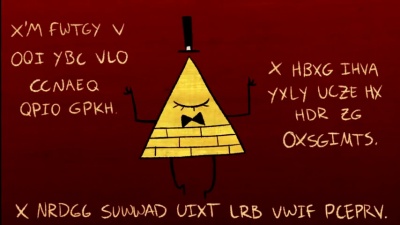 X'M FWTGY V
OQI YBC VLO
CCNAEQ
QPIO GPKH.
X HBXG IHVA
YXLY UCZE HX
HDR ZG
OXSGIMTS.
X NRDGG SUWWAD UIXT LRB VWIF PCEPRV.